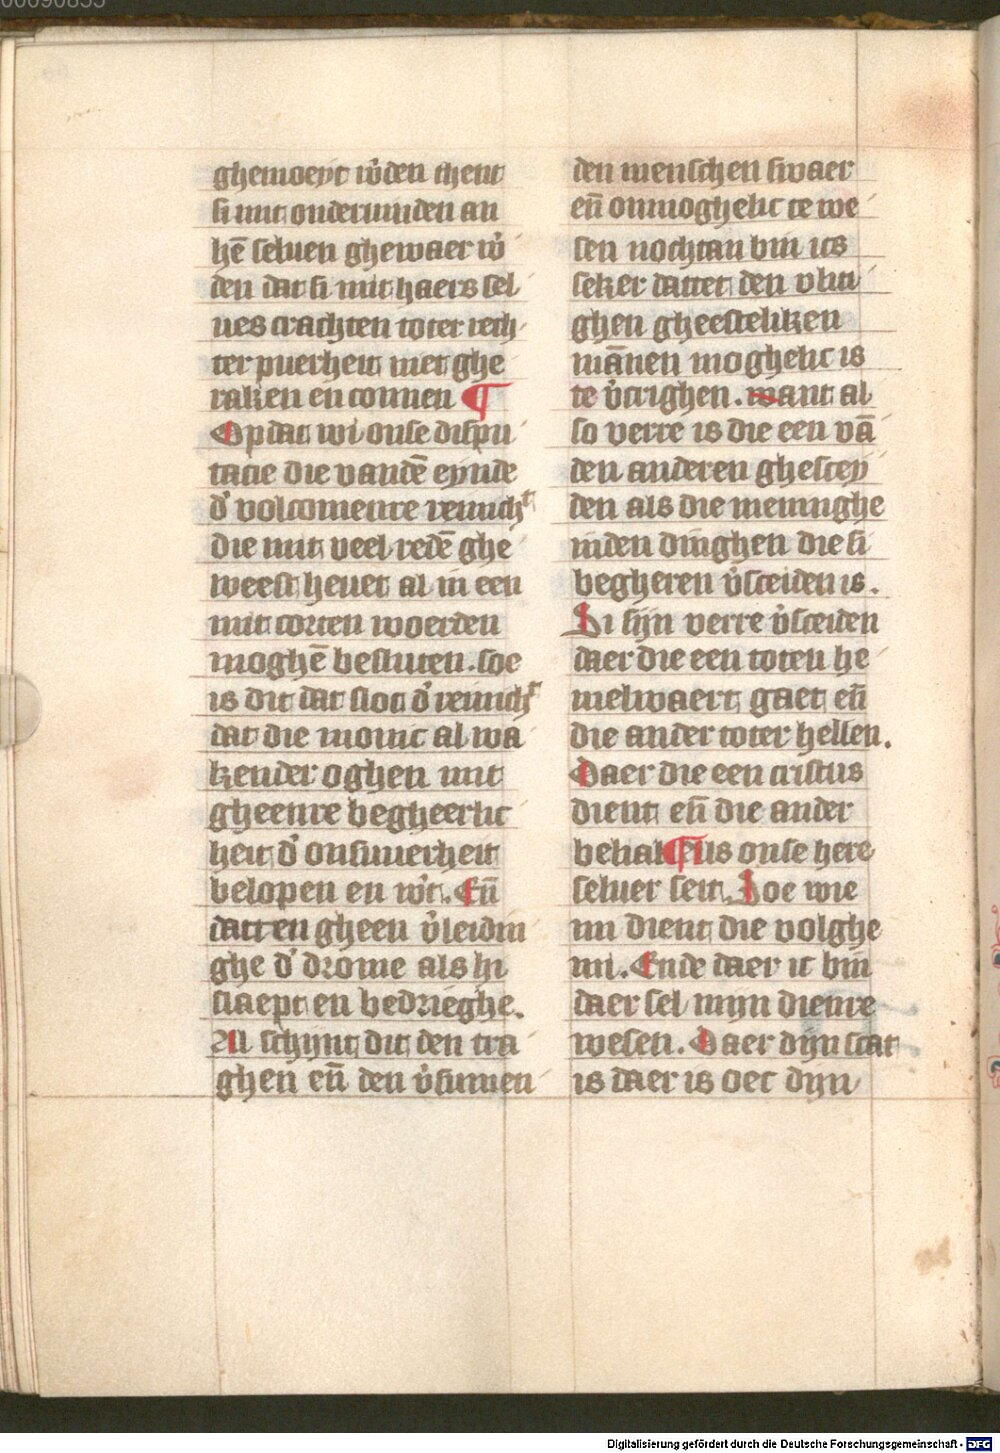 00090855
ghemoeyt w͛den thent
si mit onderuinden an
hē seluen ghewaer w͛
den dat si mit haers sel
ues crachten toter rech
ter puerheit niet ghe
raken en connen ¶
Opdat wi onse dispu
tacie die vandē eynde
d͛ volcomenre reinichͭ
die mit veel redē ghe
weest heuet al in een
mit corten woerden
moghē besluten. soe
is dit dat slot d͛ reinichͭ
dat die monic al wa
kender oghen mit
gheenre begheerlic
heit d͛ onsuuerheit
belopen en w͛t. Eñ
datten gheen v͛leidin
ghe d͛ drome als hi
slaept en bedrieghe.
Al schijnt dit den tra
ghen eñ den v͛sumen
den menschen swaer
eñ onmoghelic te we
sen nochtan bin ics
seker dattet den vliti
ghen gheesteliken
mānen moghelic is
te v͛crighen. want al
so verre is die een vā
den anderen ghescey
den als die meninghe
inden dinghen die si
begheren v͛sceiden is.
Si sijn verre v͛sceiden
daer die een toten he
melwaert gaet eñ
die ander toter hellen.
Daer die een cristus
dient eñ die ander
belial ¶ Als onse here
seluer seit. Soe wie
mi dient die volghe
mi. Ende daer ic bin
daer sel mijn dienre
wesen. Daer dijn scat
is daer is oec dijn
Digitalisierung gefördert durch die Deutsche Forschungsgemeinschaft - DFG